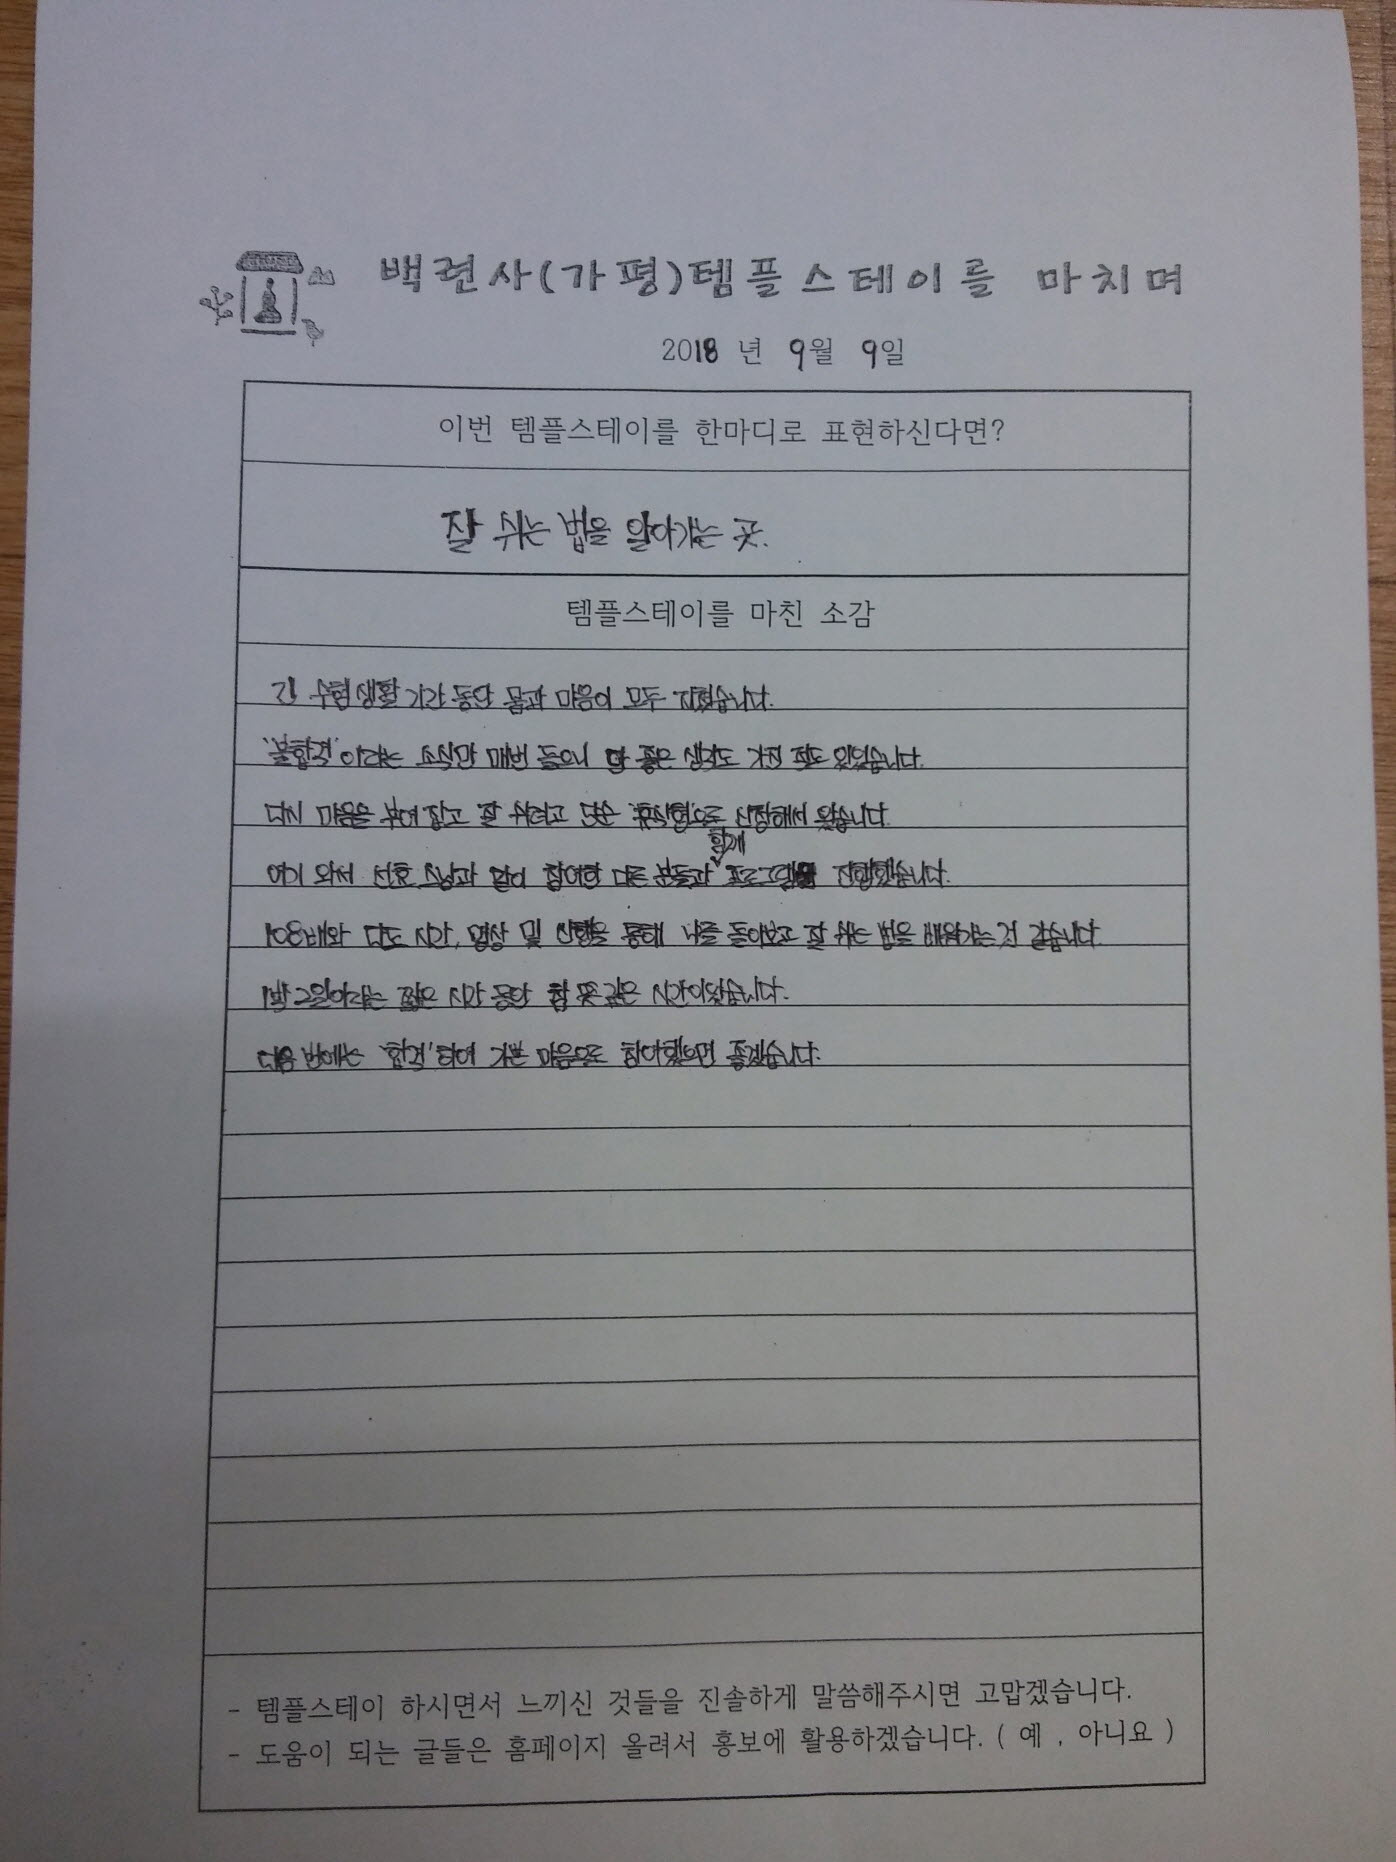 백련사(가평)템플스테이를 마치며
2018 년 9월 9일
이번 템플스테이를 한마디로 표현하신다면?
잘 쉬는 법을 알아가는 곳.
템플스테이를 마친 소감
긴 수험생활 기간 동안 몸과 마음이 모두 지쳤습니다.
'불합격'이라는 소식만 매번 들으니 안 좋은 생각도 가진 적도 있었습니다.
다시 마음을 부여 잡고 잘 쉬려고 단순 휴식형으로 신청해서 왔습니다.
여기 와서 선효 스님과 같이 참여한 다른 분들과 함께 프로그램을 진행했습니다.
108배와 다도 시간, 명상 및 산행을 통해 나를 돌아보고 잘 쉬는 법을 배워가는 것 같습니다
1박 2일이라는 짧은 시간 동안 참 뜻 깊은 시간이었습니다.
다음 번에는 '합격'하여 기쁜 마음으로 참여했으면 좋겠습니다.
- 템플스테이 하시면서 느끼신 것들을 진솔하게 말씀해주시면 고맙겠습니다.
- 도움이 되는 글들은 홈페이지 올려서 홍보에 활용하겠습니다. ( 예 , 아니요 )